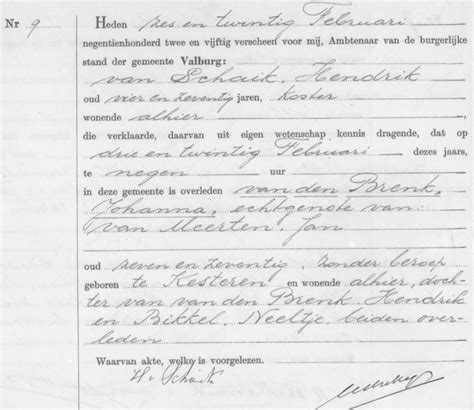 Nr 9
Heden zes en twintig Februari
negentienhonderd twee en vijftig verscheen voor mij, Ambtenaar van de burgerlijke
stand der gemeente Valburg:
van Schaik, Hendrik
oud vier en zeventig jaren, koster
wonende alhier
die verklaarde, daarvan uit eigen wetenschap kennis dragende, dat op
drie en twintig Februari dezes jaars,
te negen uur
in deze gemeente is overleden van den Brenk,
Johanna, echtgenote van:
van Meerten, Jan
oud zeven en zeventig, zonder beroep
geboren te Kesteren en wonende alhier, doch-
ter van van den Brenk, Hendrik
en Bikkel, Neeltje, beiden over-
leden
Waarvan akte, welke is voorgelezen.
H v Schaik